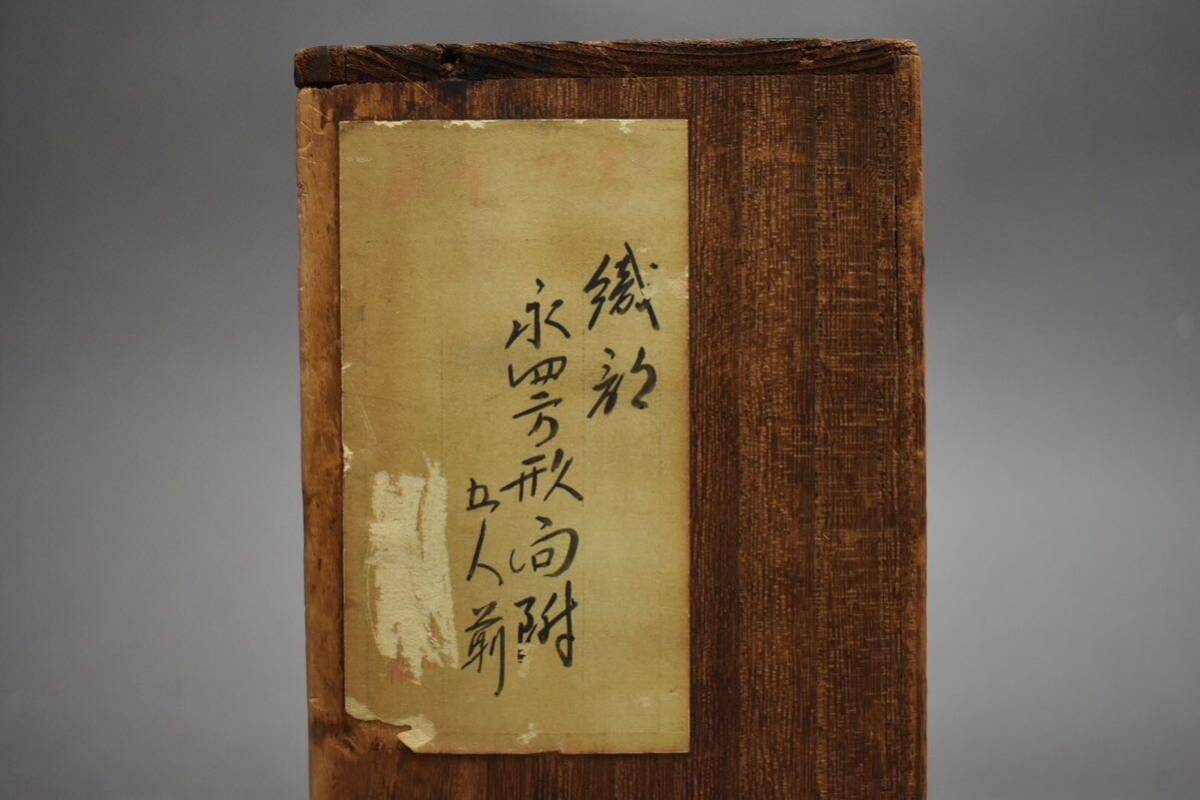 織部
永四方形向附
五人前